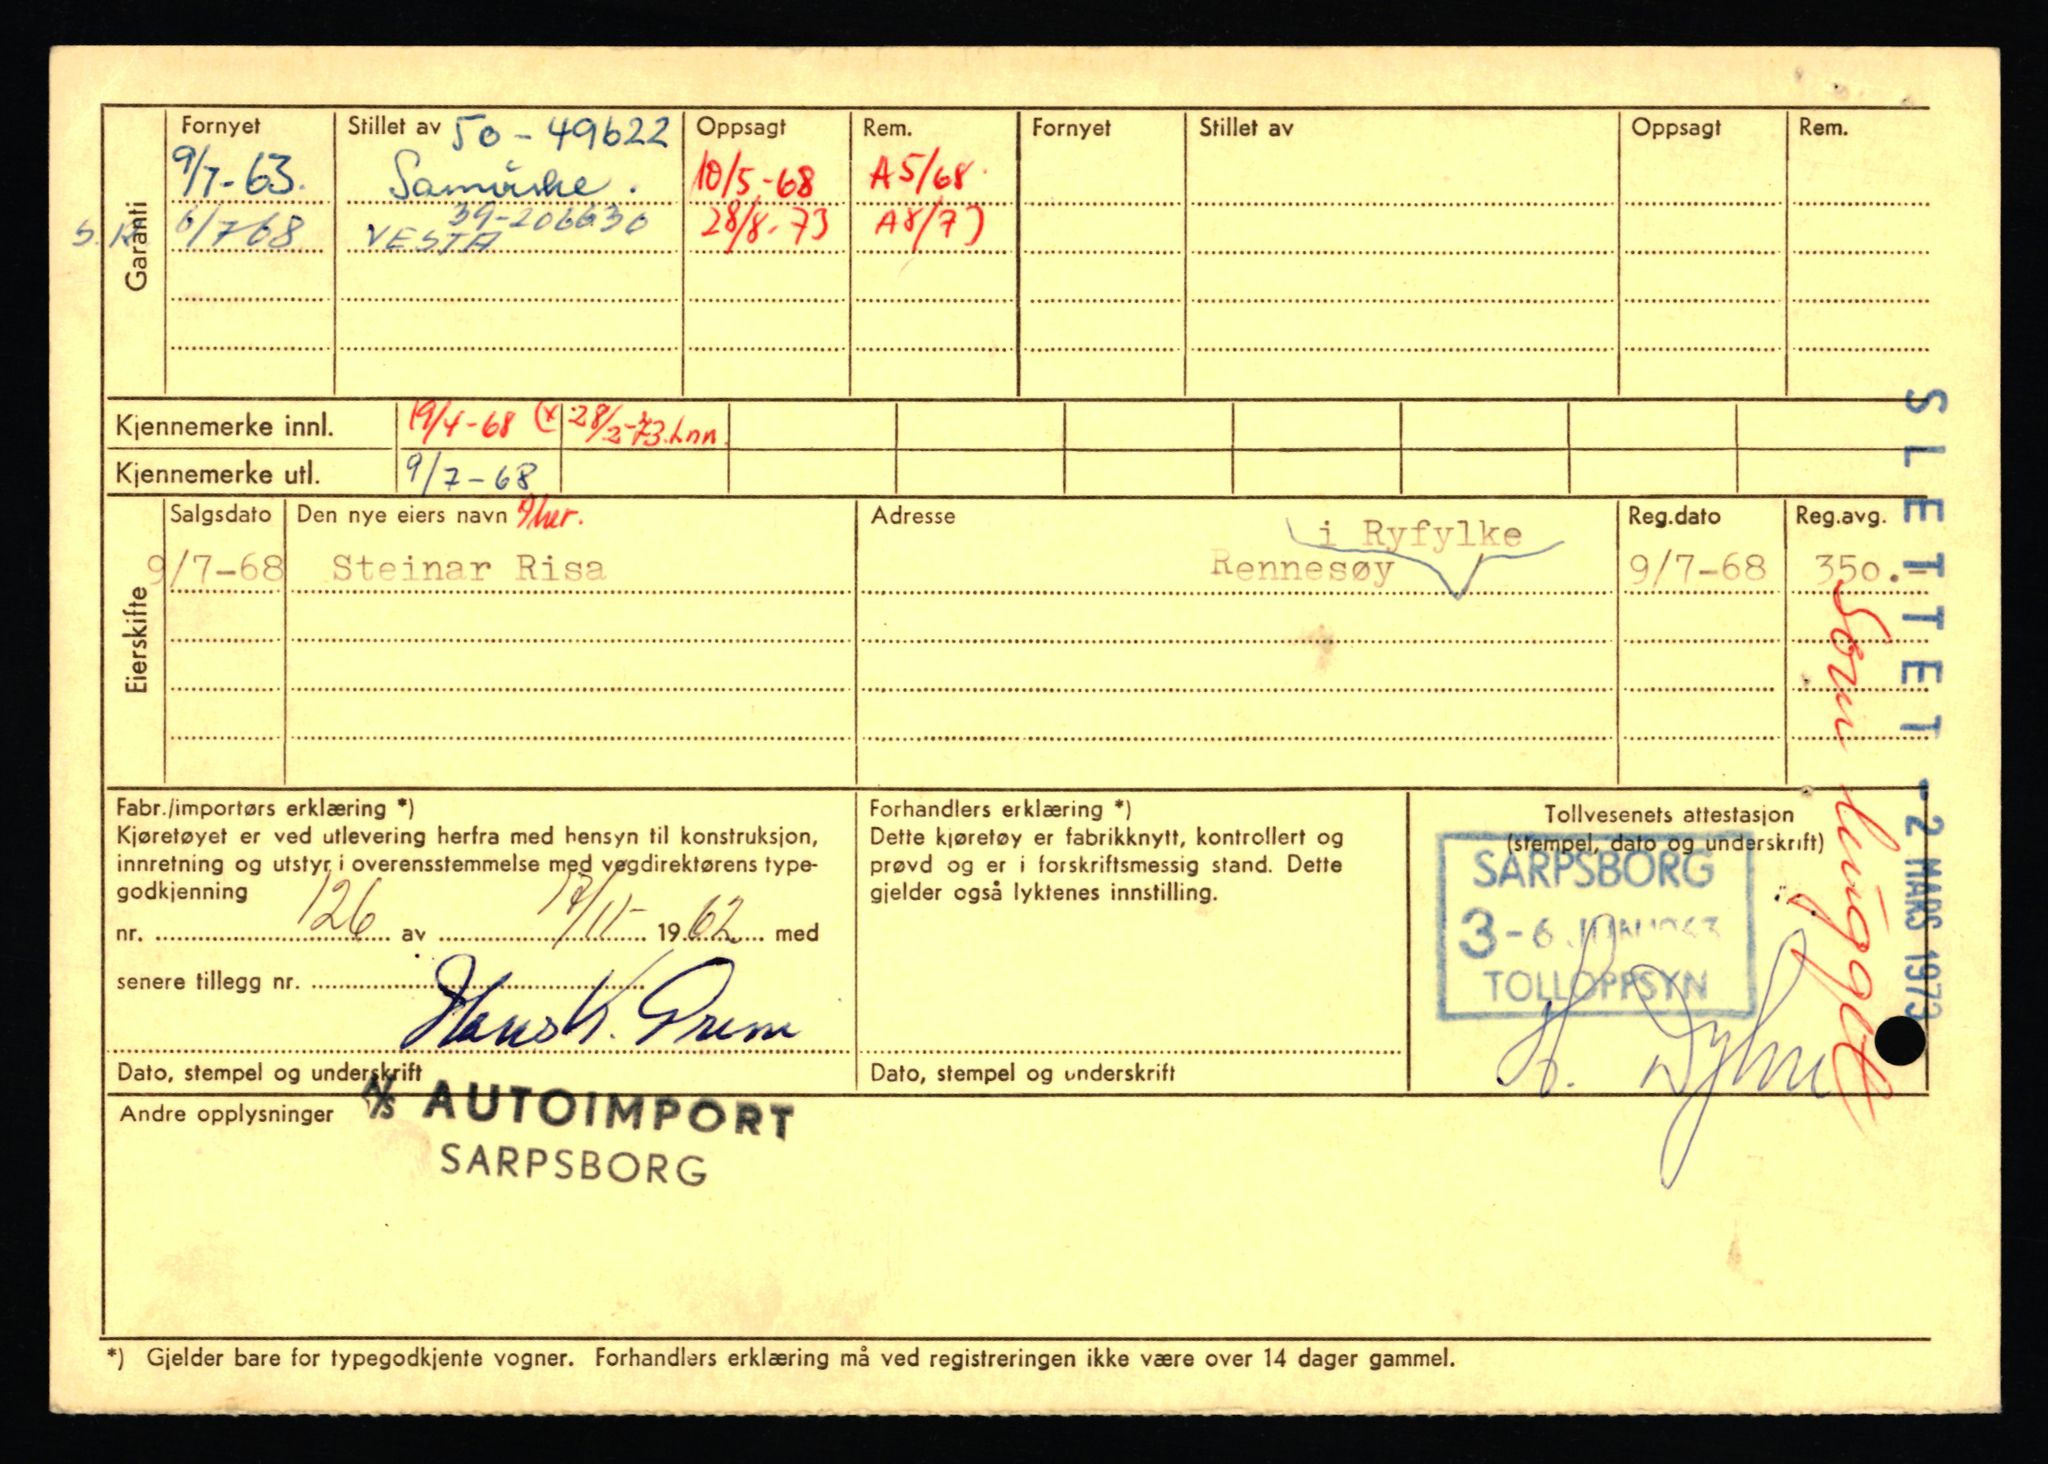 Garanti
Fornyet Stillet av 50-49622 Oppsagt Rem. Fornyet Stillet av Oppsagt Rem.
9/7-63. Samvirke. 10/5-68 A5/68.
6/7-68 VESTA 39-206630 28/8-73 A8/73
Kjennemerke innl. 19/4-68 (x 28/2-73. Inn.
Kjennemerke utl. 9/7-68
Eierskifte
Salgsdato Den nye eiers navn Adresse Reg.dato Reg.avg.
i Ryfylke
9/7-68 Steinar Risa Rennesøy 9/7-68 350.-
SLETTET - 2 MARS 1973
Som hugget
Fabr./importørs erklæring *)
Kjøretøyet er ved utlevering herfra med hensyn til konstruksjon,
innretning og utstyr i overensstemmelse med vegdirektørens type-
godkjenning
nr. 126 av 19 62 med
senere tillegg nr.
Hans K.
Dato, stempel og underskrift
A/S AUTOIMPORT
SARPSBORG
Forhandlers erklæring *)
Dette kjøretøy er fabrikknytt, kontrollert og
prøvd og er i forskriftsmessig stand. Dette
gjelder også lyktenes innstilling.
Dato, stempel og underskrift
Tollvesenets attestasjon
(stempel, dato og underskrift)
SARPSBORG
3 - 6 JUNI 1963
TOLLOPPSYN
Andre opplysninger
*) Gjelder bare for typegodkjente vogner. Forhandlers erklæring må ved registreringen ikke være over 14 dager gammel.